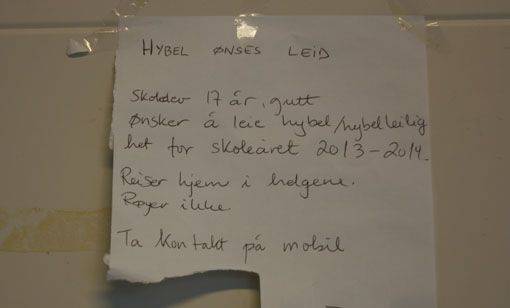 HYBEL ØNSES LEID
Skoleelev 17 år, gutt
Ønsker å leie hybel/hybelleilig
het for skoleåret 2013-2014.
Reiser hjem i helgene.
Røyer ikke.
Ta kontakt på mobil